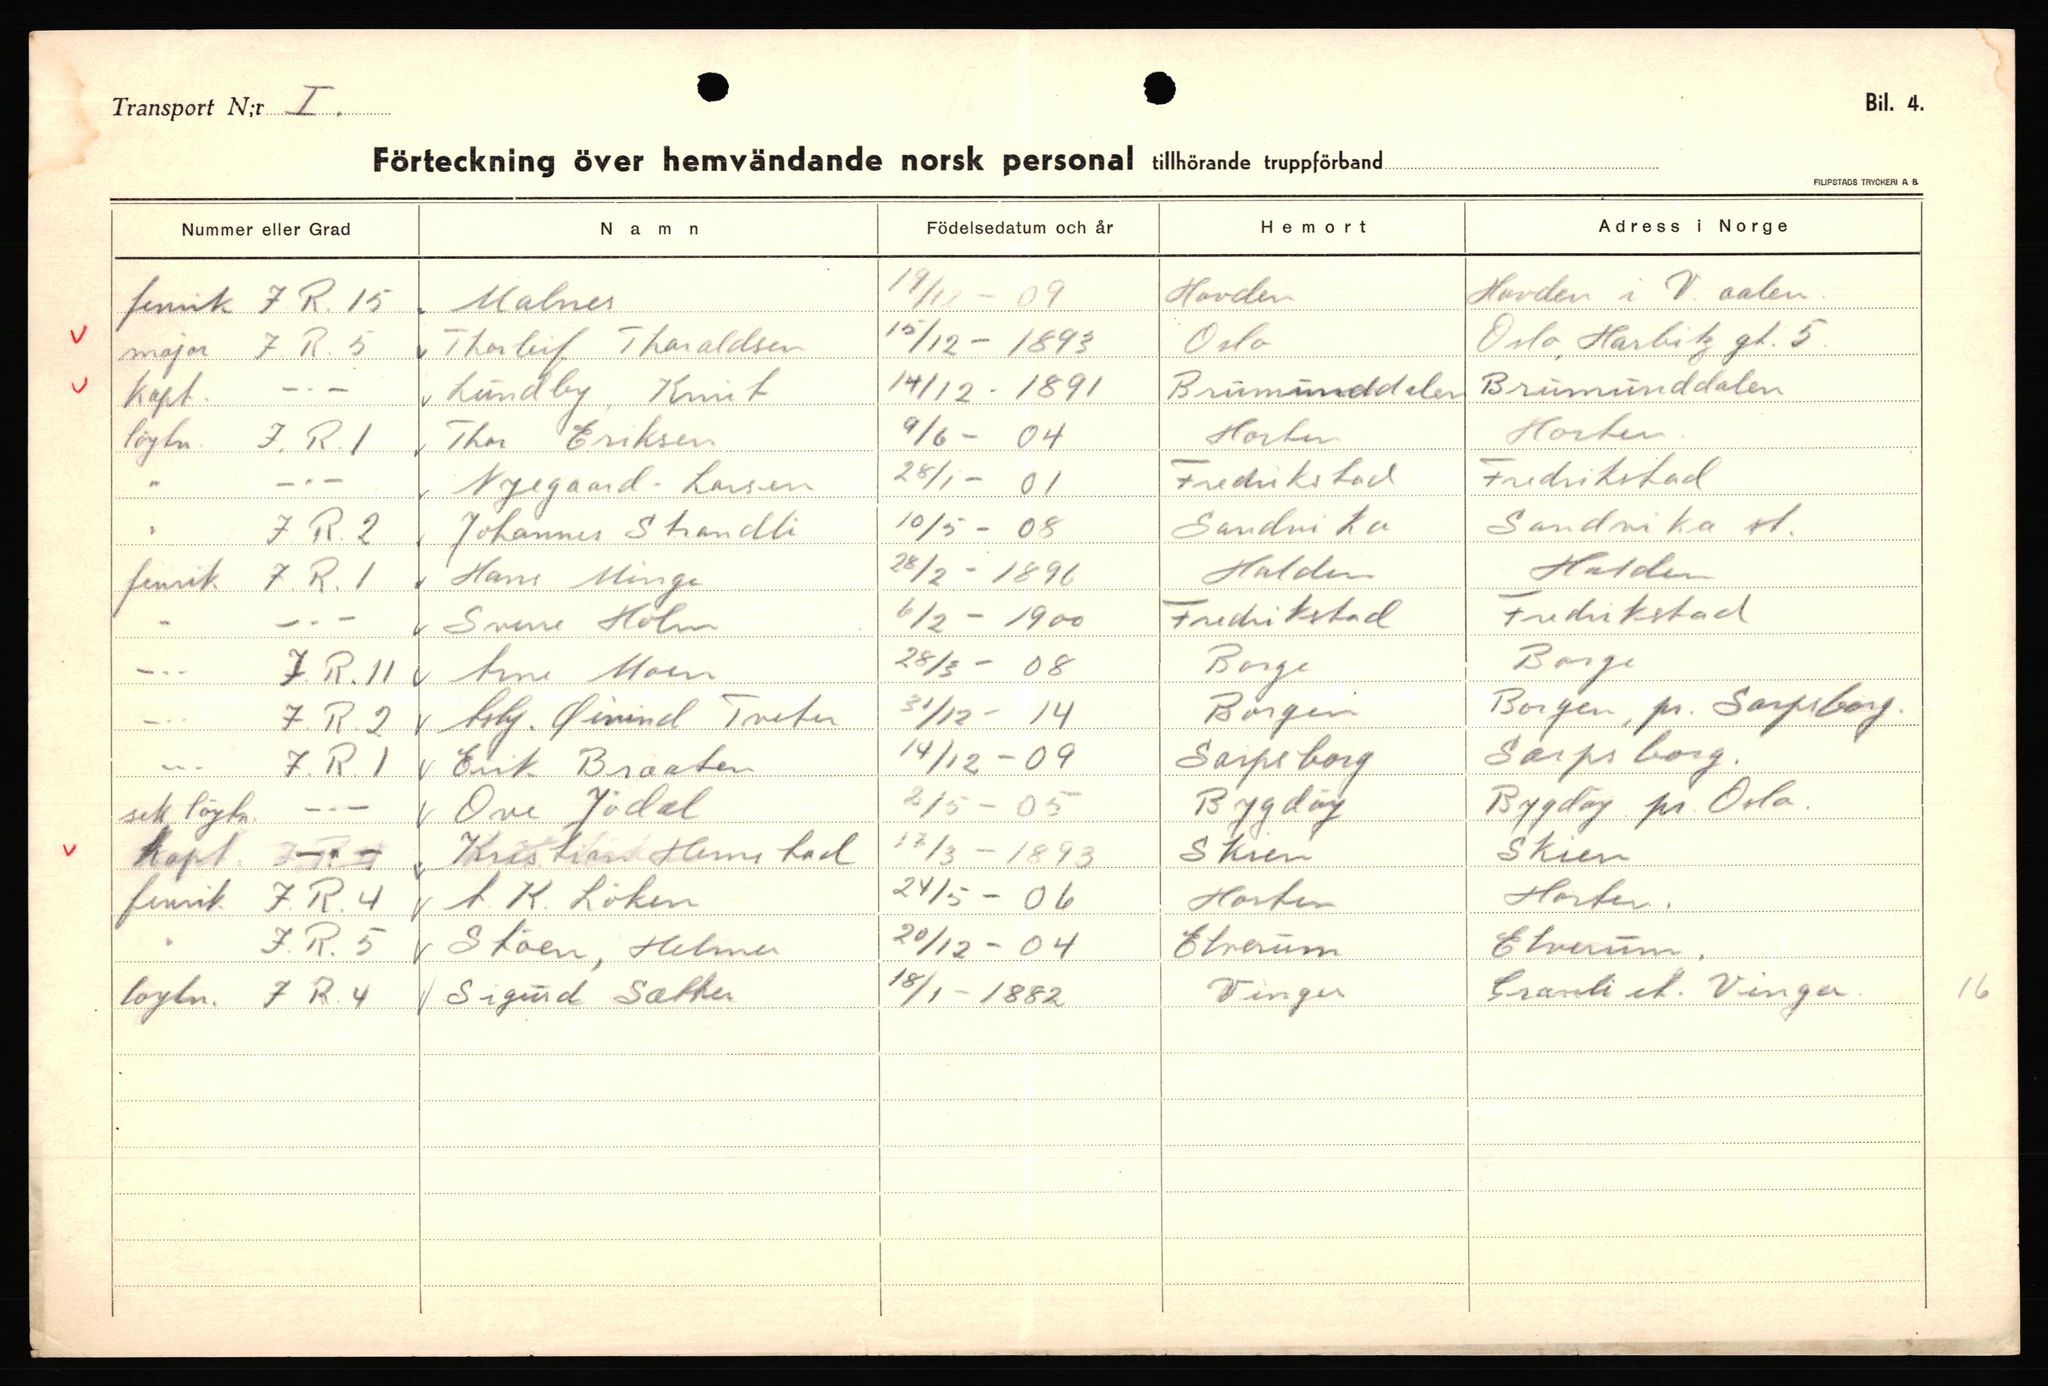 Transport N:r I.
Bil. 4.
Förteckning över hemvändande norsk personal tillhörande truppförband
FILIPSTADS TRYCKERI A. B.
Nummer eller Grad Namn Födelsedatum och år Hemort Adress i Norge
fenrik J. R. 15 Malnes 09 Hovden Hovden i V. aalen.
v major J. R. 5 v Thorleif Tharaldsen 15/12 - 1893 Oslo Oslo, Harbitz gt. 5.
v Kapt. -"- v Lundby, Knut 14/12 - 1891 Brumunddalen Brumunddalen
löytn. J. R. 1 v Thor Eriksen 9/6 - 04 Horten Horten.
" -"- v Nyegaard-Larsen 28/1 - 01 Fredrikstad Fredrikstad
" J. R. 2 v Johannes Strandli 10/5 - 08 Sandvika Sandvika st.
fenrik J. R. 1 v Hans Minge 28/2 - 1896 Halden Halden
" -"- v Sverre Holm 6/2 - 1900 Fredrikstad Fredrikstad
-"- J. R. 11 v Arne Moen 28/3 - 08 Borge Borge
-"- J. R. 2 v Asbj. Øivind Tveter 31/12 - 14 Borgen Borgen, pr. Sarpsborg.
-"- J. R. 1 v Erik Braaten 14/12 - 09 Sarpsborg Sarpsborg.
sek löytn. -"- v Ove Jödal 2/5 - 05 Bygdöy Bygdöy pr. Oslo.
v Kapt. -"- v Kristian Hemstad 17/3 - 1893 Skien Skien
fenrik J. R. 4 v A. K. Löken 24/5 - 06 Horten Horten.
" J. R. 5 v Stöen, Helmer 20/12 - 04 Elverum Elverum.
löytn. J. R. 4 v Sigurd Sæther 18/1 - 1882 Vinger Granli st. Vinger. 16